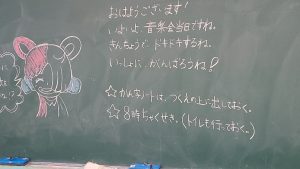 おはようございます!
いよいよ、音楽会当日ですね。
きんちょうで、ドキドキするね。
いっしょに、がんばろうね!
☆かんきなノートは、つくえの上に出しておく。
☆8時ちゃくせき。(トイレも行っておく。)